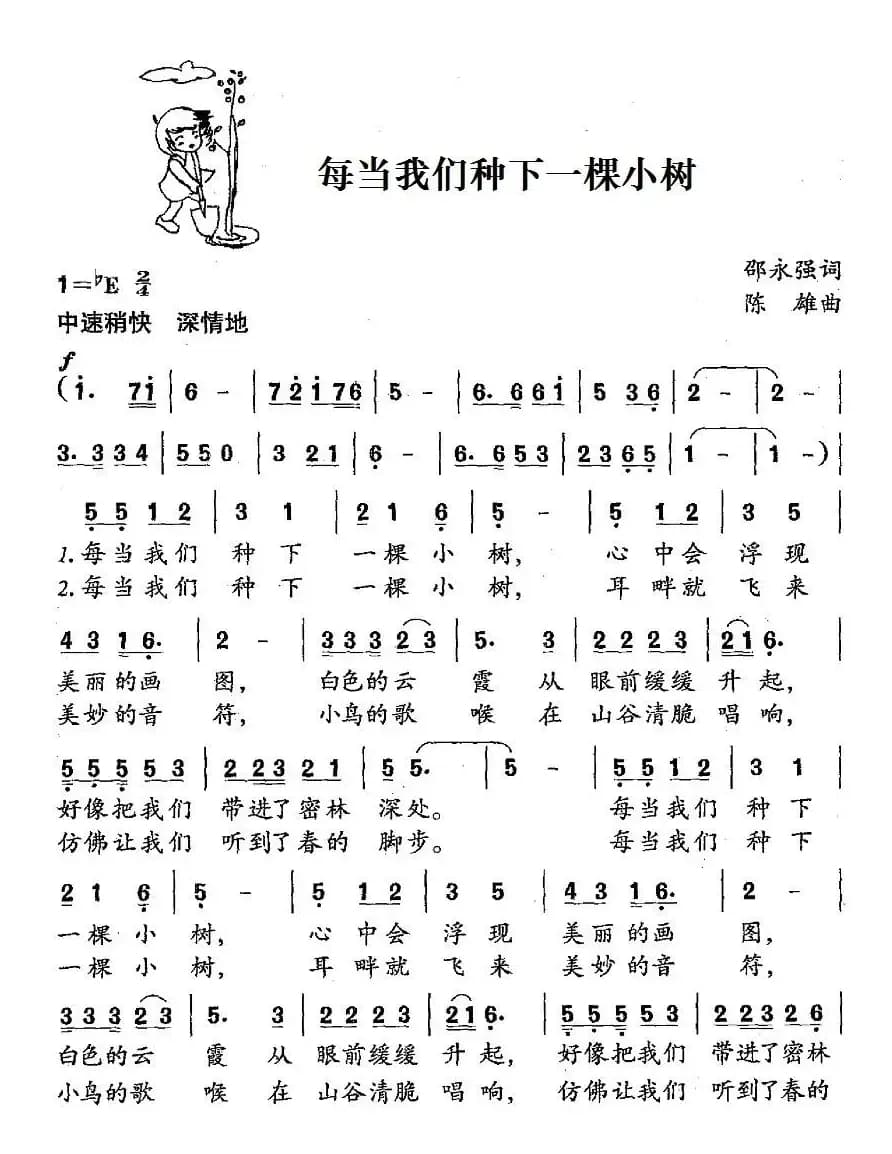 每当我们种下一棵小树
邵永强词
1=♭E 2/4
陈 雄曲
中速稍快 深情地
f
(i. 7i | 6 - | 72i76 | 5 - | 6. 661 | 5 36 | 2 - | 2 - |
3. 334 | 550 | 3 21 | 6 - | 6. 653 | 2365 | 1 - | 1 -) |
5 5 1 2 | 3 1 | 2 1 6 | 5 - | 5 1 2 | 3 5 |
1.每当我们 种 下 一棵 小 树, 心 中会 浮 现
2.每当我们 种 下 一棵 小 树, 耳 畔就 飞 来
4 3 1 6. | 2 - | 3 3 3 2 3 | 5. 3 | 2 2 2 3 | 2 1 6. |
美丽的画 图, 白色的云 霞 从 眼前缓缓 升 起,
美妙的音 符, 小鸟的歌 喉 在 山谷清脆 唱 响,
5 5 5 5 3 | 2 2 3 2 1 | 5 5. | 5 - | 5 5 1 2 | 3 1 |
好像把我们 带进了密林 深处。 每当我们 种 下
仿佛让我们 听到了春的 脚步。 每当我们 种 下
2 1 6 | 5 - | 5 1 2 | 3 5 | 4 3 1 6. | 2 - |
一棵 小 树, 心 中会 浮 现 美丽的画 图,
一棵 小 树, 耳 畔就 飞 来 美妙的音 符,
3 3 3 2 3 | 5. 3 | 2 2 2 3 | 2 1 6. | 5 5 5 5 3 | 2 2 3 2 6 |
白色的云 霞 从 眼前缓缓 升 起, 好像把我们 带进了密林
小鸟的歌 喉 在 山谷清脆 唱 响, 仿佛让我们 听到了春的